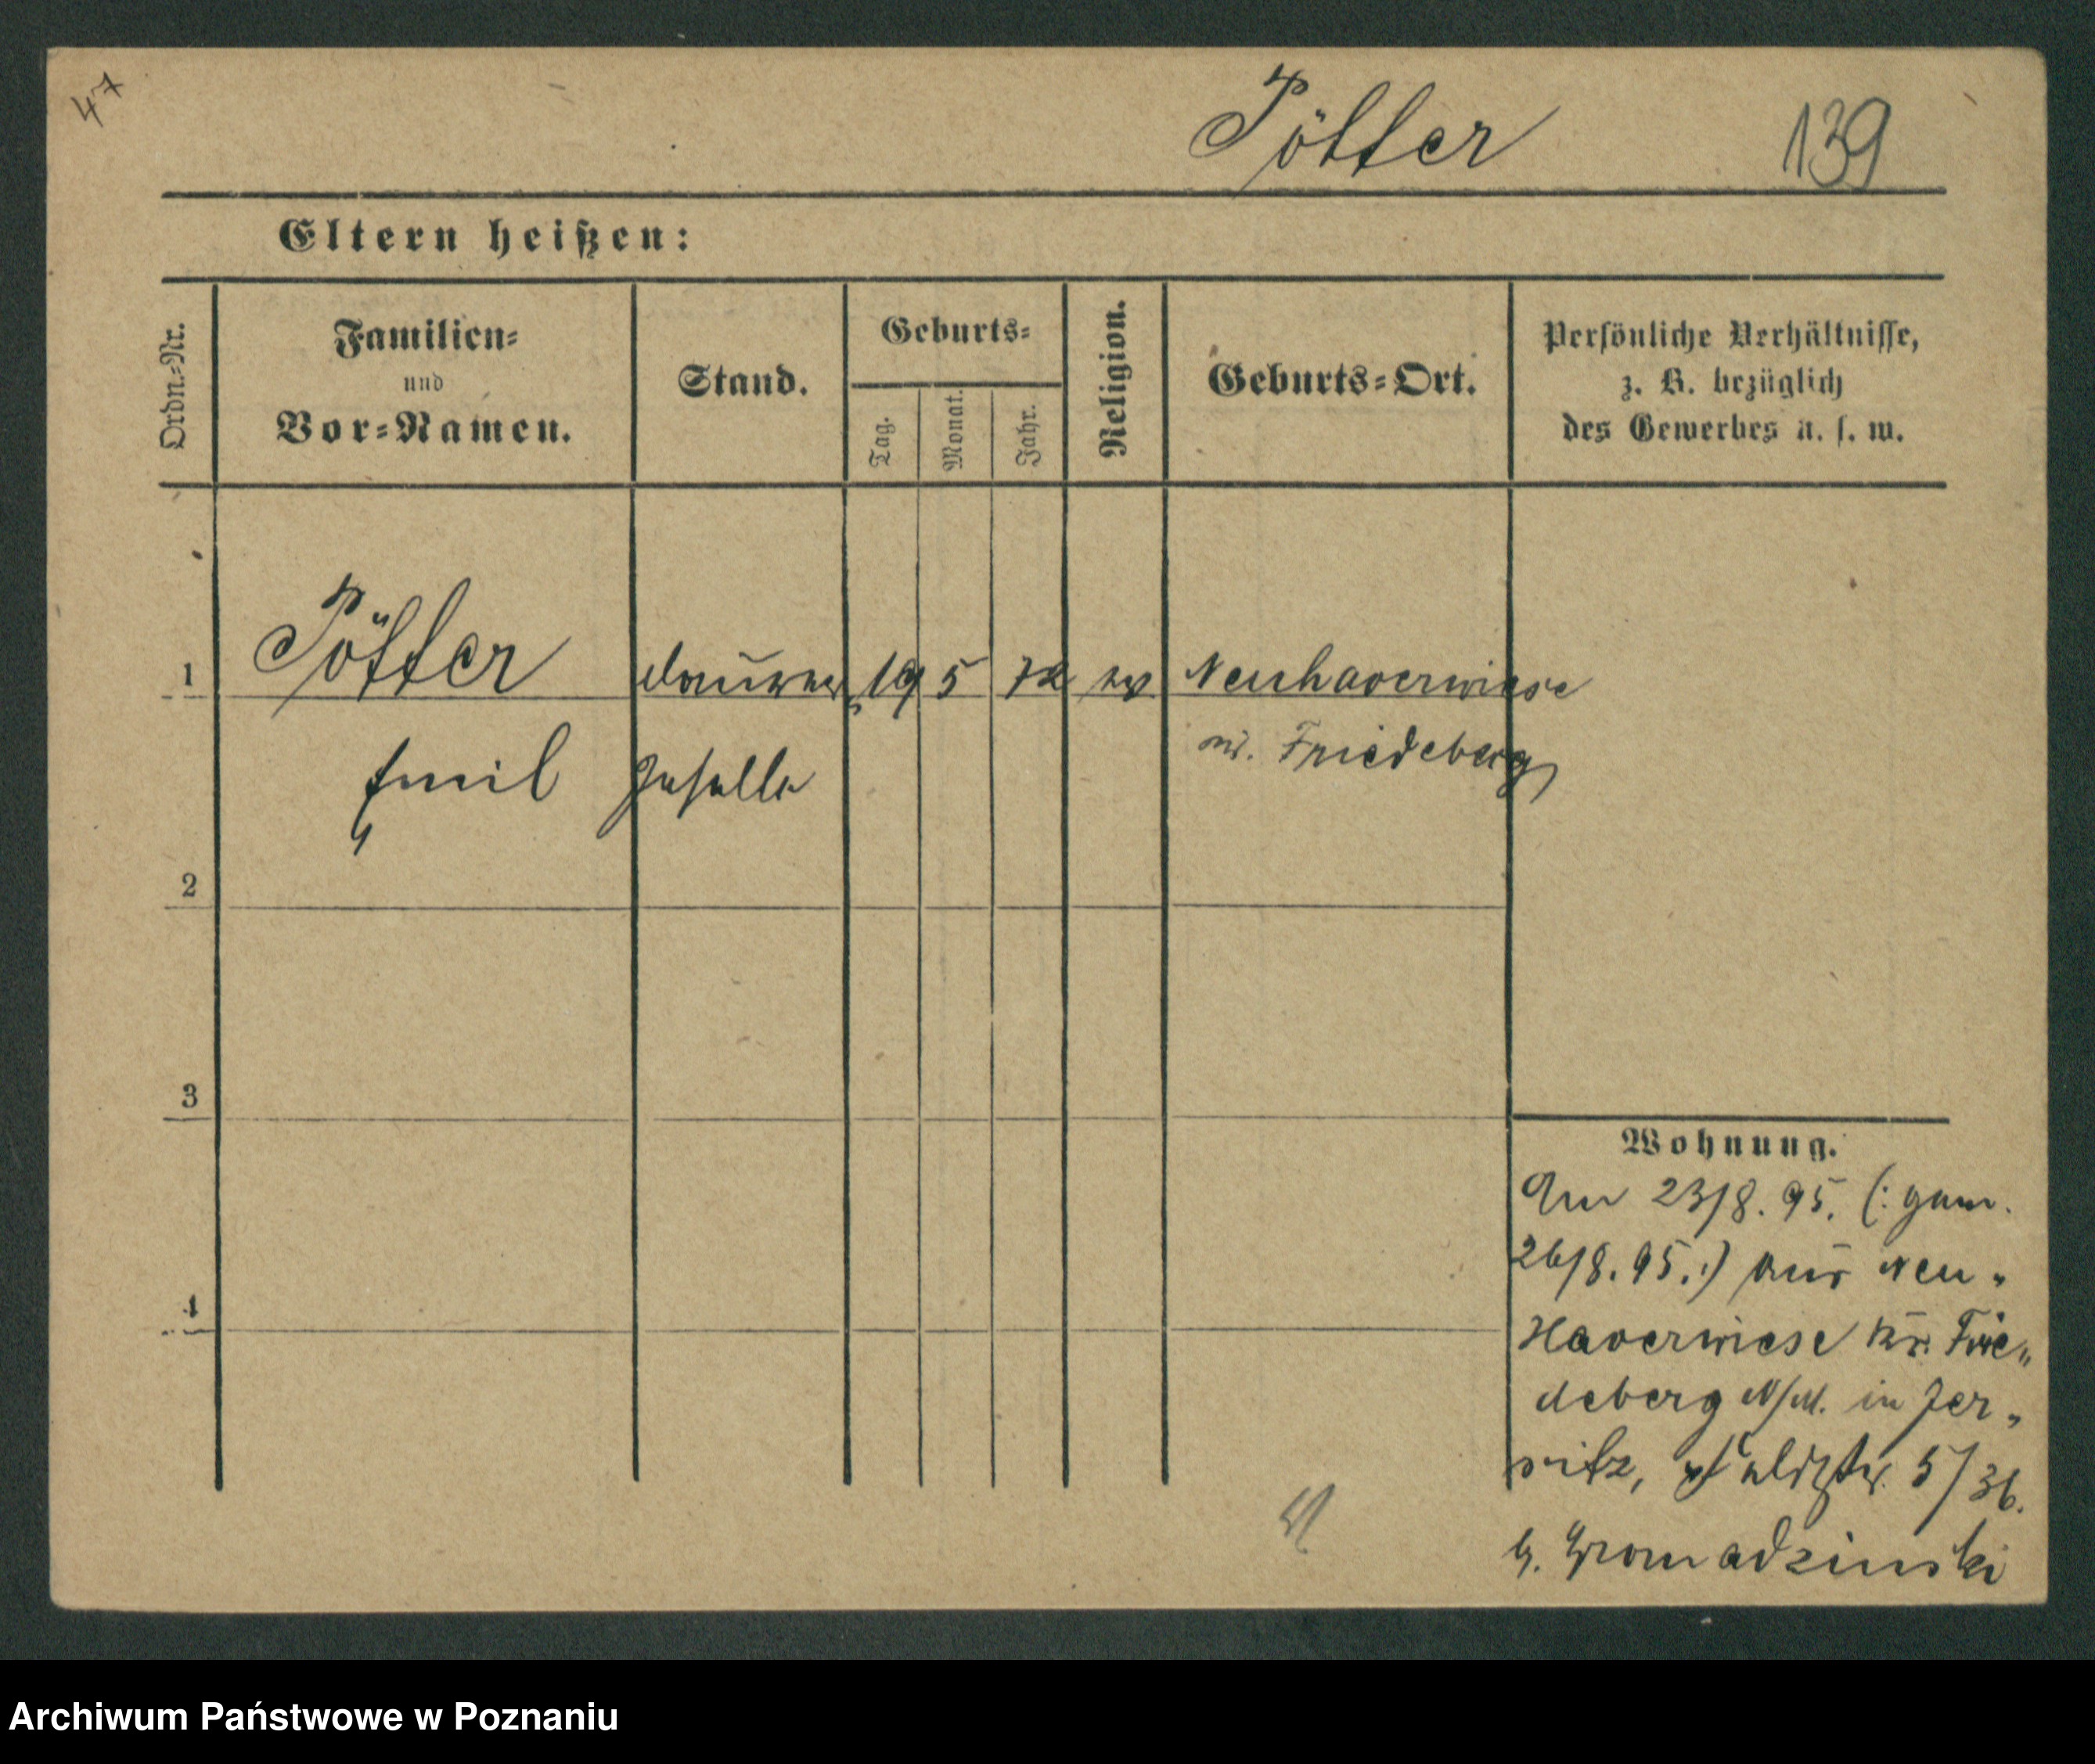 47
Pötter 139
Eltern heißen:
Ordn.-Nr.
Familien-
und
Vor-Namen.
Stand.
Geburts-
Tag.
Monat.
Jahr.
Religion.
Geburts-Ort.
Persönliche Verhältnisse,
z. B. bezüglich
des Gewerbes u. s. w.
1 Pötter 19 5 72 ev Neuhaverwiese
Emil Geselle Kr. Friedeberg
2
3
4
Wohnung.
Am 23/8. 95. (: gem.
26/8. 95. :) aus Neu-
Haverwiese Kr. Frie-
deberg N/M. in Jer-
sitz, 5/36.
b. Gromadzinski
Archiwum Państwowe w Poznaniu